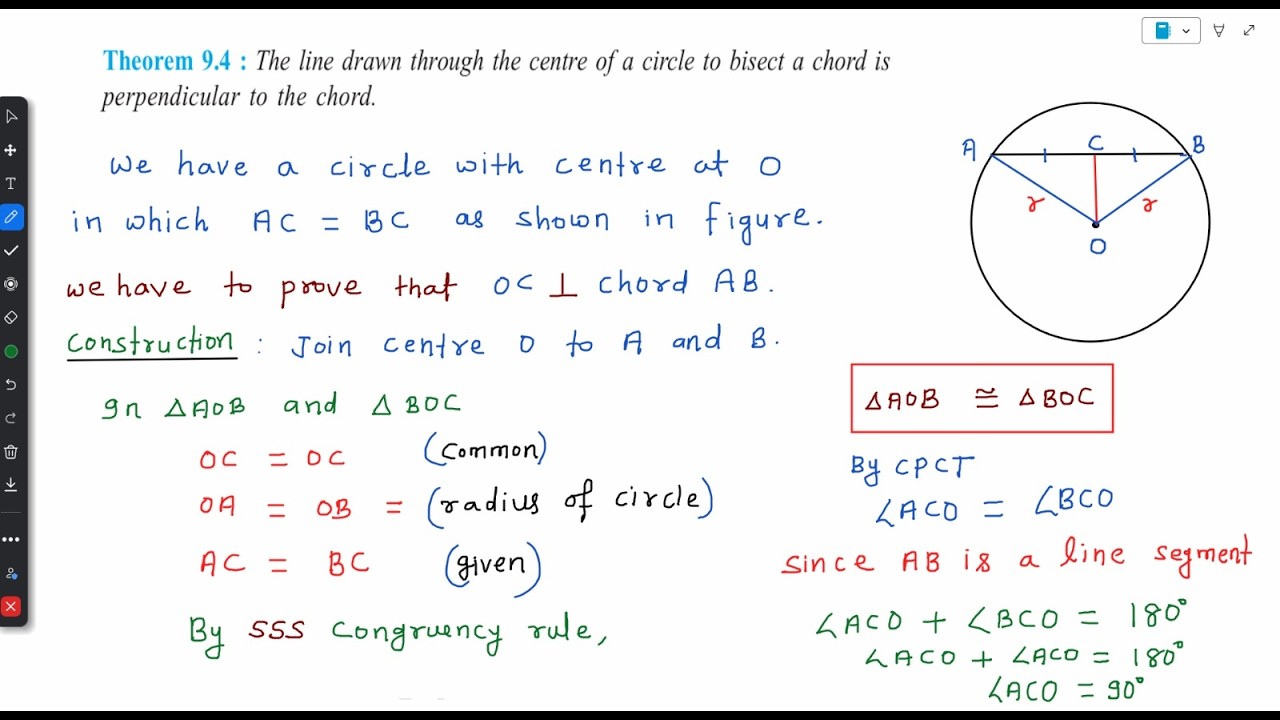 Theorem 9.4 : The line drawn through the centre of a circle to bisect a chord is
perpendicular to the chord.
We have a circle with centre at O
in which AC = BC as shown in figure.
we have to prove that OC ⊥ chord AB.
Construction : Join centre O to A and B.
In △AOB and △BOC
OC = OC (Common)
OA = OB = (radius of circle)
AC = BC (given)
By SSS Congruency rule,
A C B
r r
O
△AOB ≅ △BOC
By CPCT
∠ACO = ∠BCO
Since AB is a line segment
∠ACO + ∠BCO = 180°
∠ACO + ∠ACO = 180°
∠ACO = 90°
T